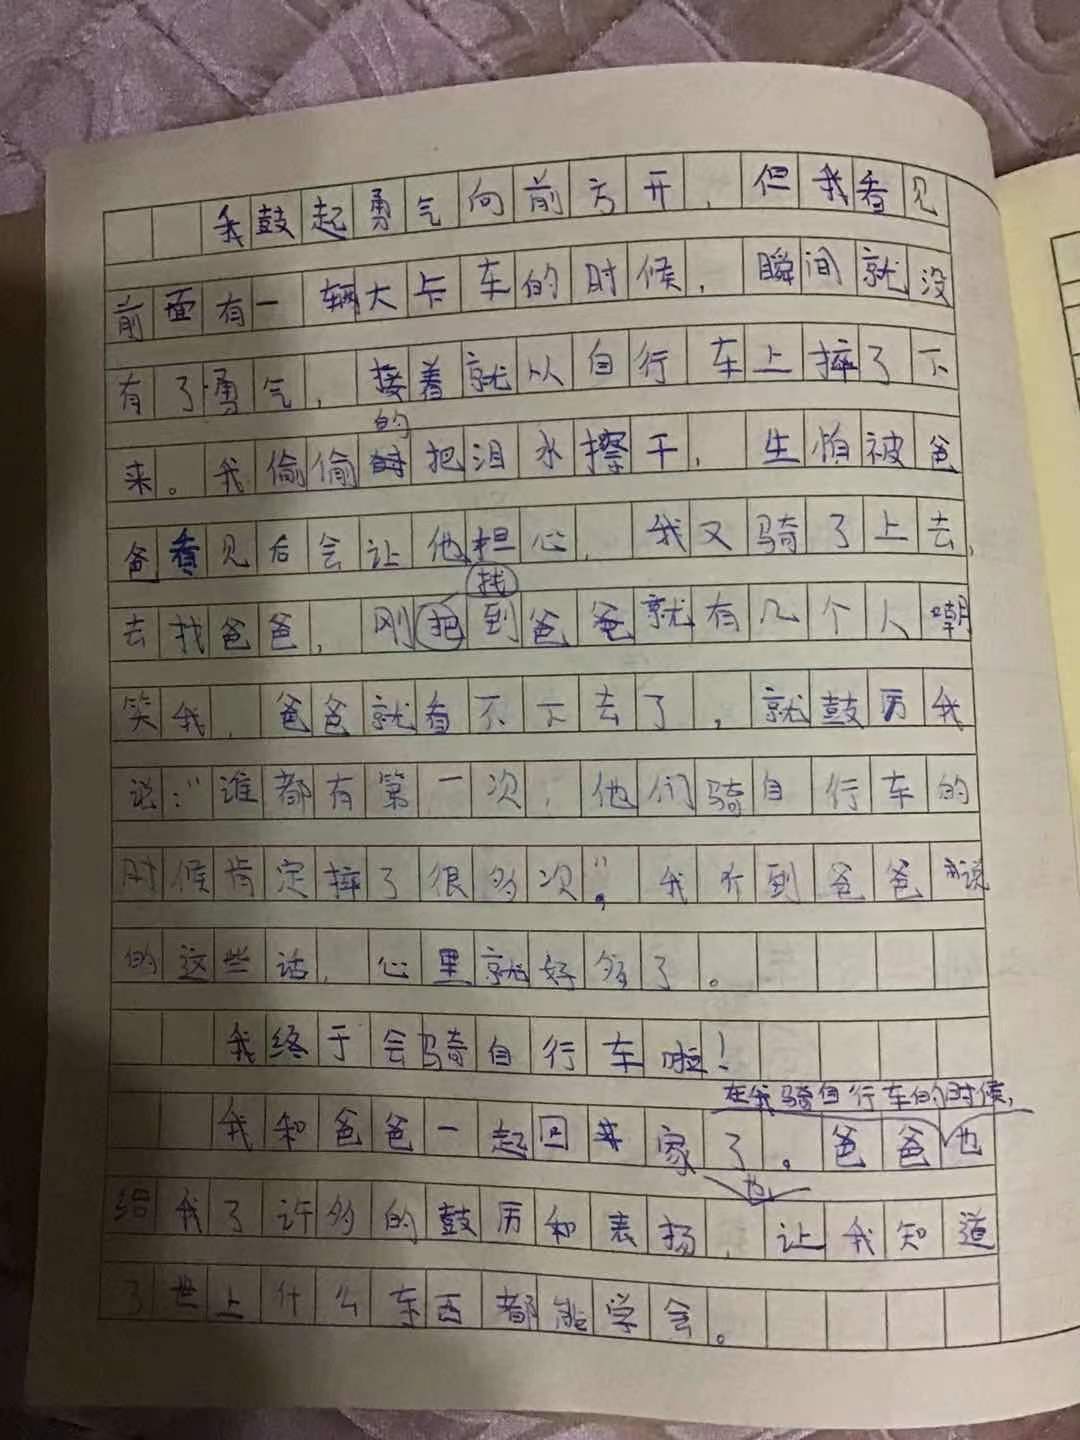 我鼓起勇气向前方开，但我看见
前面有一辆大卡车的时候，瞬间就没
有了勇气，接着就从自行车上摔了下
的
来。我偷偷把泪水擦干，生怕被爸
爸看见后会让他担心，我又骑了上去，
找
去找爸爸，刚把到爸爸就有几个人嘲
笑我，爸爸就看不下去了，就鼓厉我
说：“谁都有第一次，他们骑自行车的
时候肯定摔了很多次”。我听到爸爸说
的这些话，心里就好多了。
我终于会骑自行车啦！
在我骑自行车的时候，
我和爸爸一起回家了。爸爸也
也
给我了许多的鼓厉和表扬，让我知道
了世上什么东西都能学会。